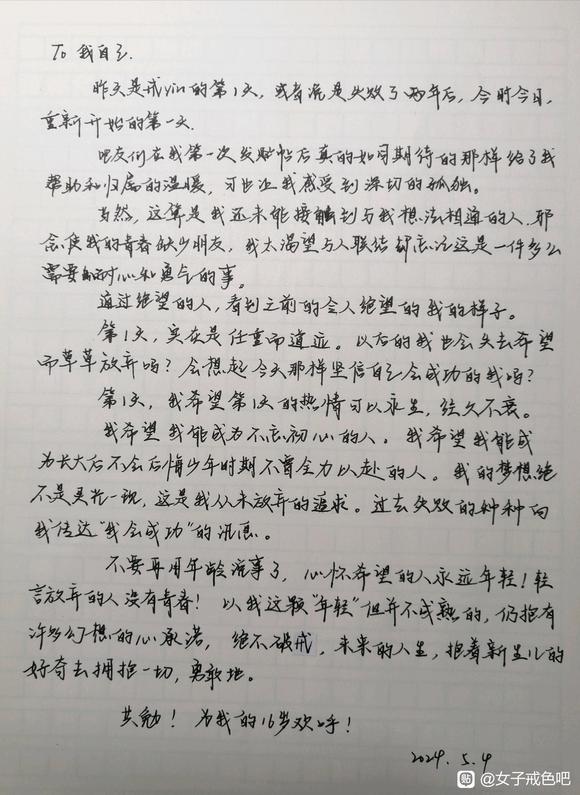 To 我自己.
昨天是戒yin的第1天，或者说是失败了两年后，今时今日，
重新开始的第一天.
吧友们在我第一次发贴帖后真的如同期待的那样给了我
帮助和归属的温暖，可也让我感受到深切的孤独。
当然，这算是我还未能接触到与我想法相通的人. 邪
念使我的青春缺少朋友，我太渴望与人联结却忘记这是一件多么
需要耐心和勇气的事。
通过绝望的人，看到之前的令人绝望的我的样子。
第1天，实在是任重而道远。以后的我也会失去希望
而草草放弃吗？会想起今天那样坚信自己会成功的我吗？
第1天，我希望第1天的热情可以永生，经久不衰。
我希望我能成为不忘初心的人。我希望我能成
为长大后不会后悔少年时期不曾全力以赴的人。我的梦想绝
不是灵光一现，这是我从未放弃的追求。过去失败的种种向
我传达“我会成功”的讯息。
不要再用年龄说事了，心怀希望的人永远年轻！轻
言放弃的人没有青春！以我这颗“年轻”但并不成熟的，仍抱有
许多幻想的心承诺，绝不破戒，未来的人生，抱着新生儿的
好奇去拥抱一切，勇敢地。
共勉！为我的16岁欢呼！
2024.5.4
贴 @女子戒色吧